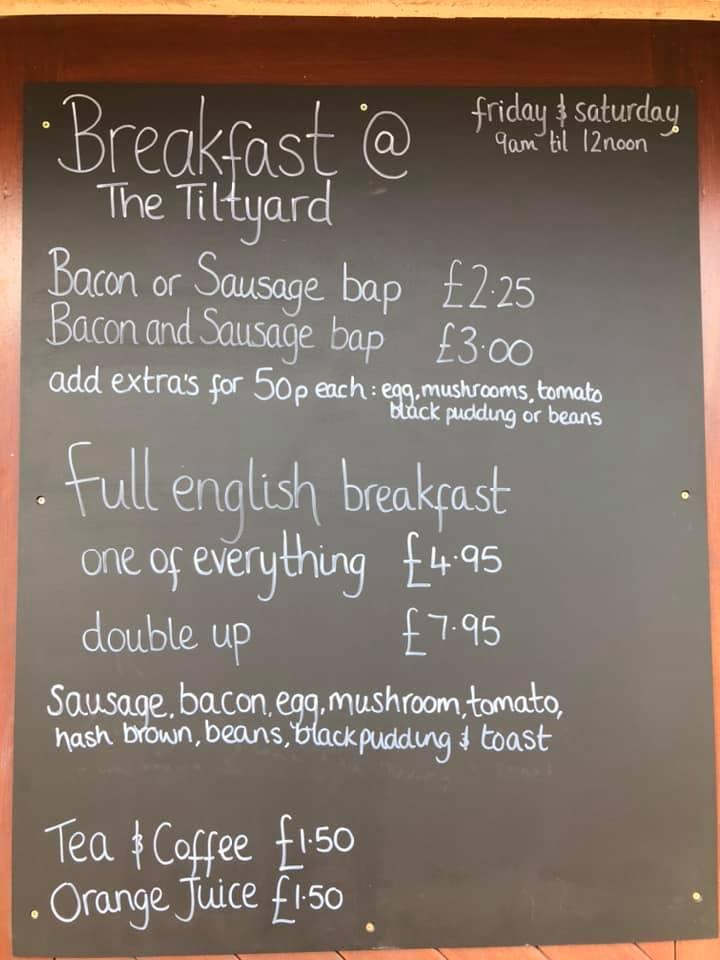 Breakfast @
The Tiltyard
friday & saturday
9am til 12noon
Bacon or Sausage bap £2.25
Bacon and Sausage bap £3.00
add extra's for 50p each: egg, mushrooms, tomato
black pudding or beans
full english breakfast
one of everything £4.95
double up £7.95
Sausage, bacon, egg, mushroom, tomato,
hash brown, beans, black pudding & toast
Tea & Coffee £1.50
Orange Juice £1.50